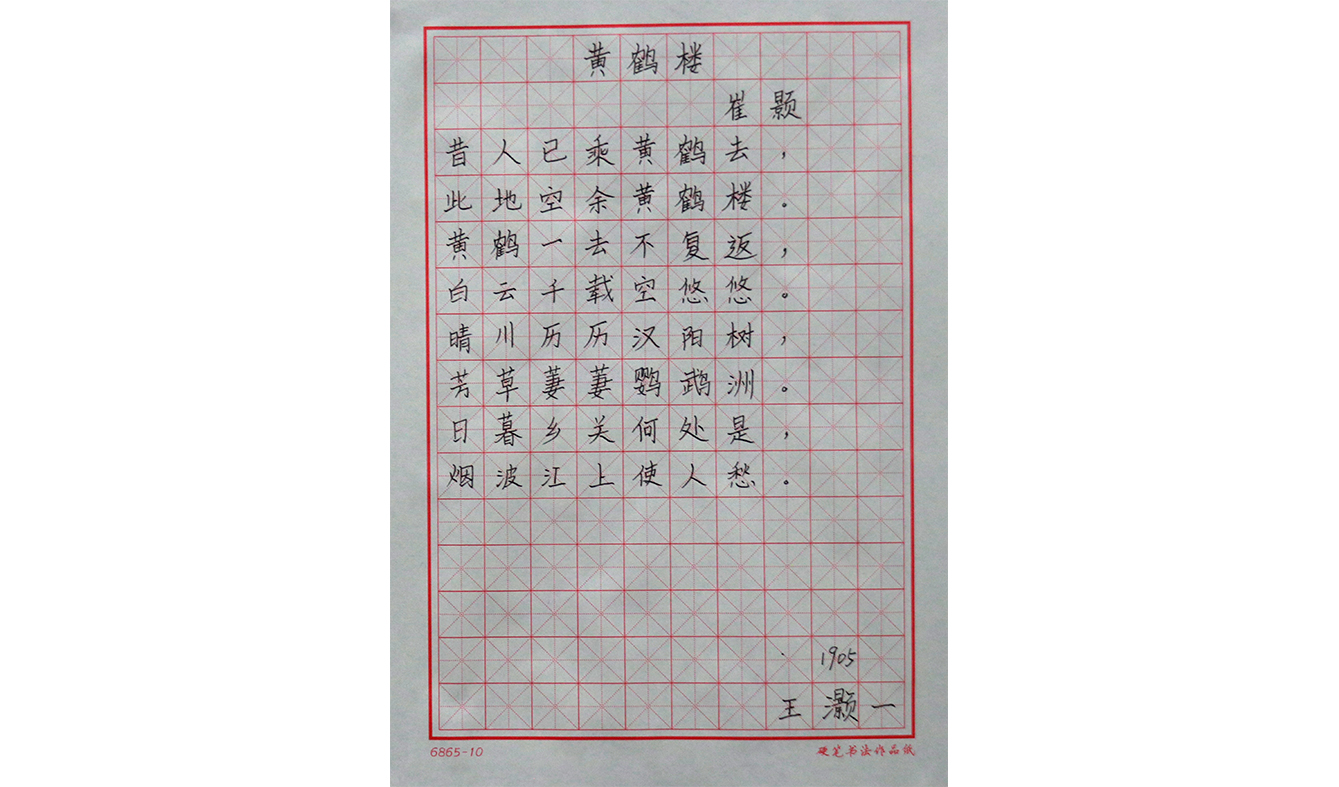 黄鹤楼
崔颢
昔人已乘黄鹤去，
此地空余黄鹤楼。
黄鹤一去不复返，
白云千载空悠悠。
晴川历历汉阳树，
芳草萋萋鹦鹉洲。
日暮乡关何处是，
烟波江上使人愁。
1905
王灏一
6865-10
硬笔书法作品纸